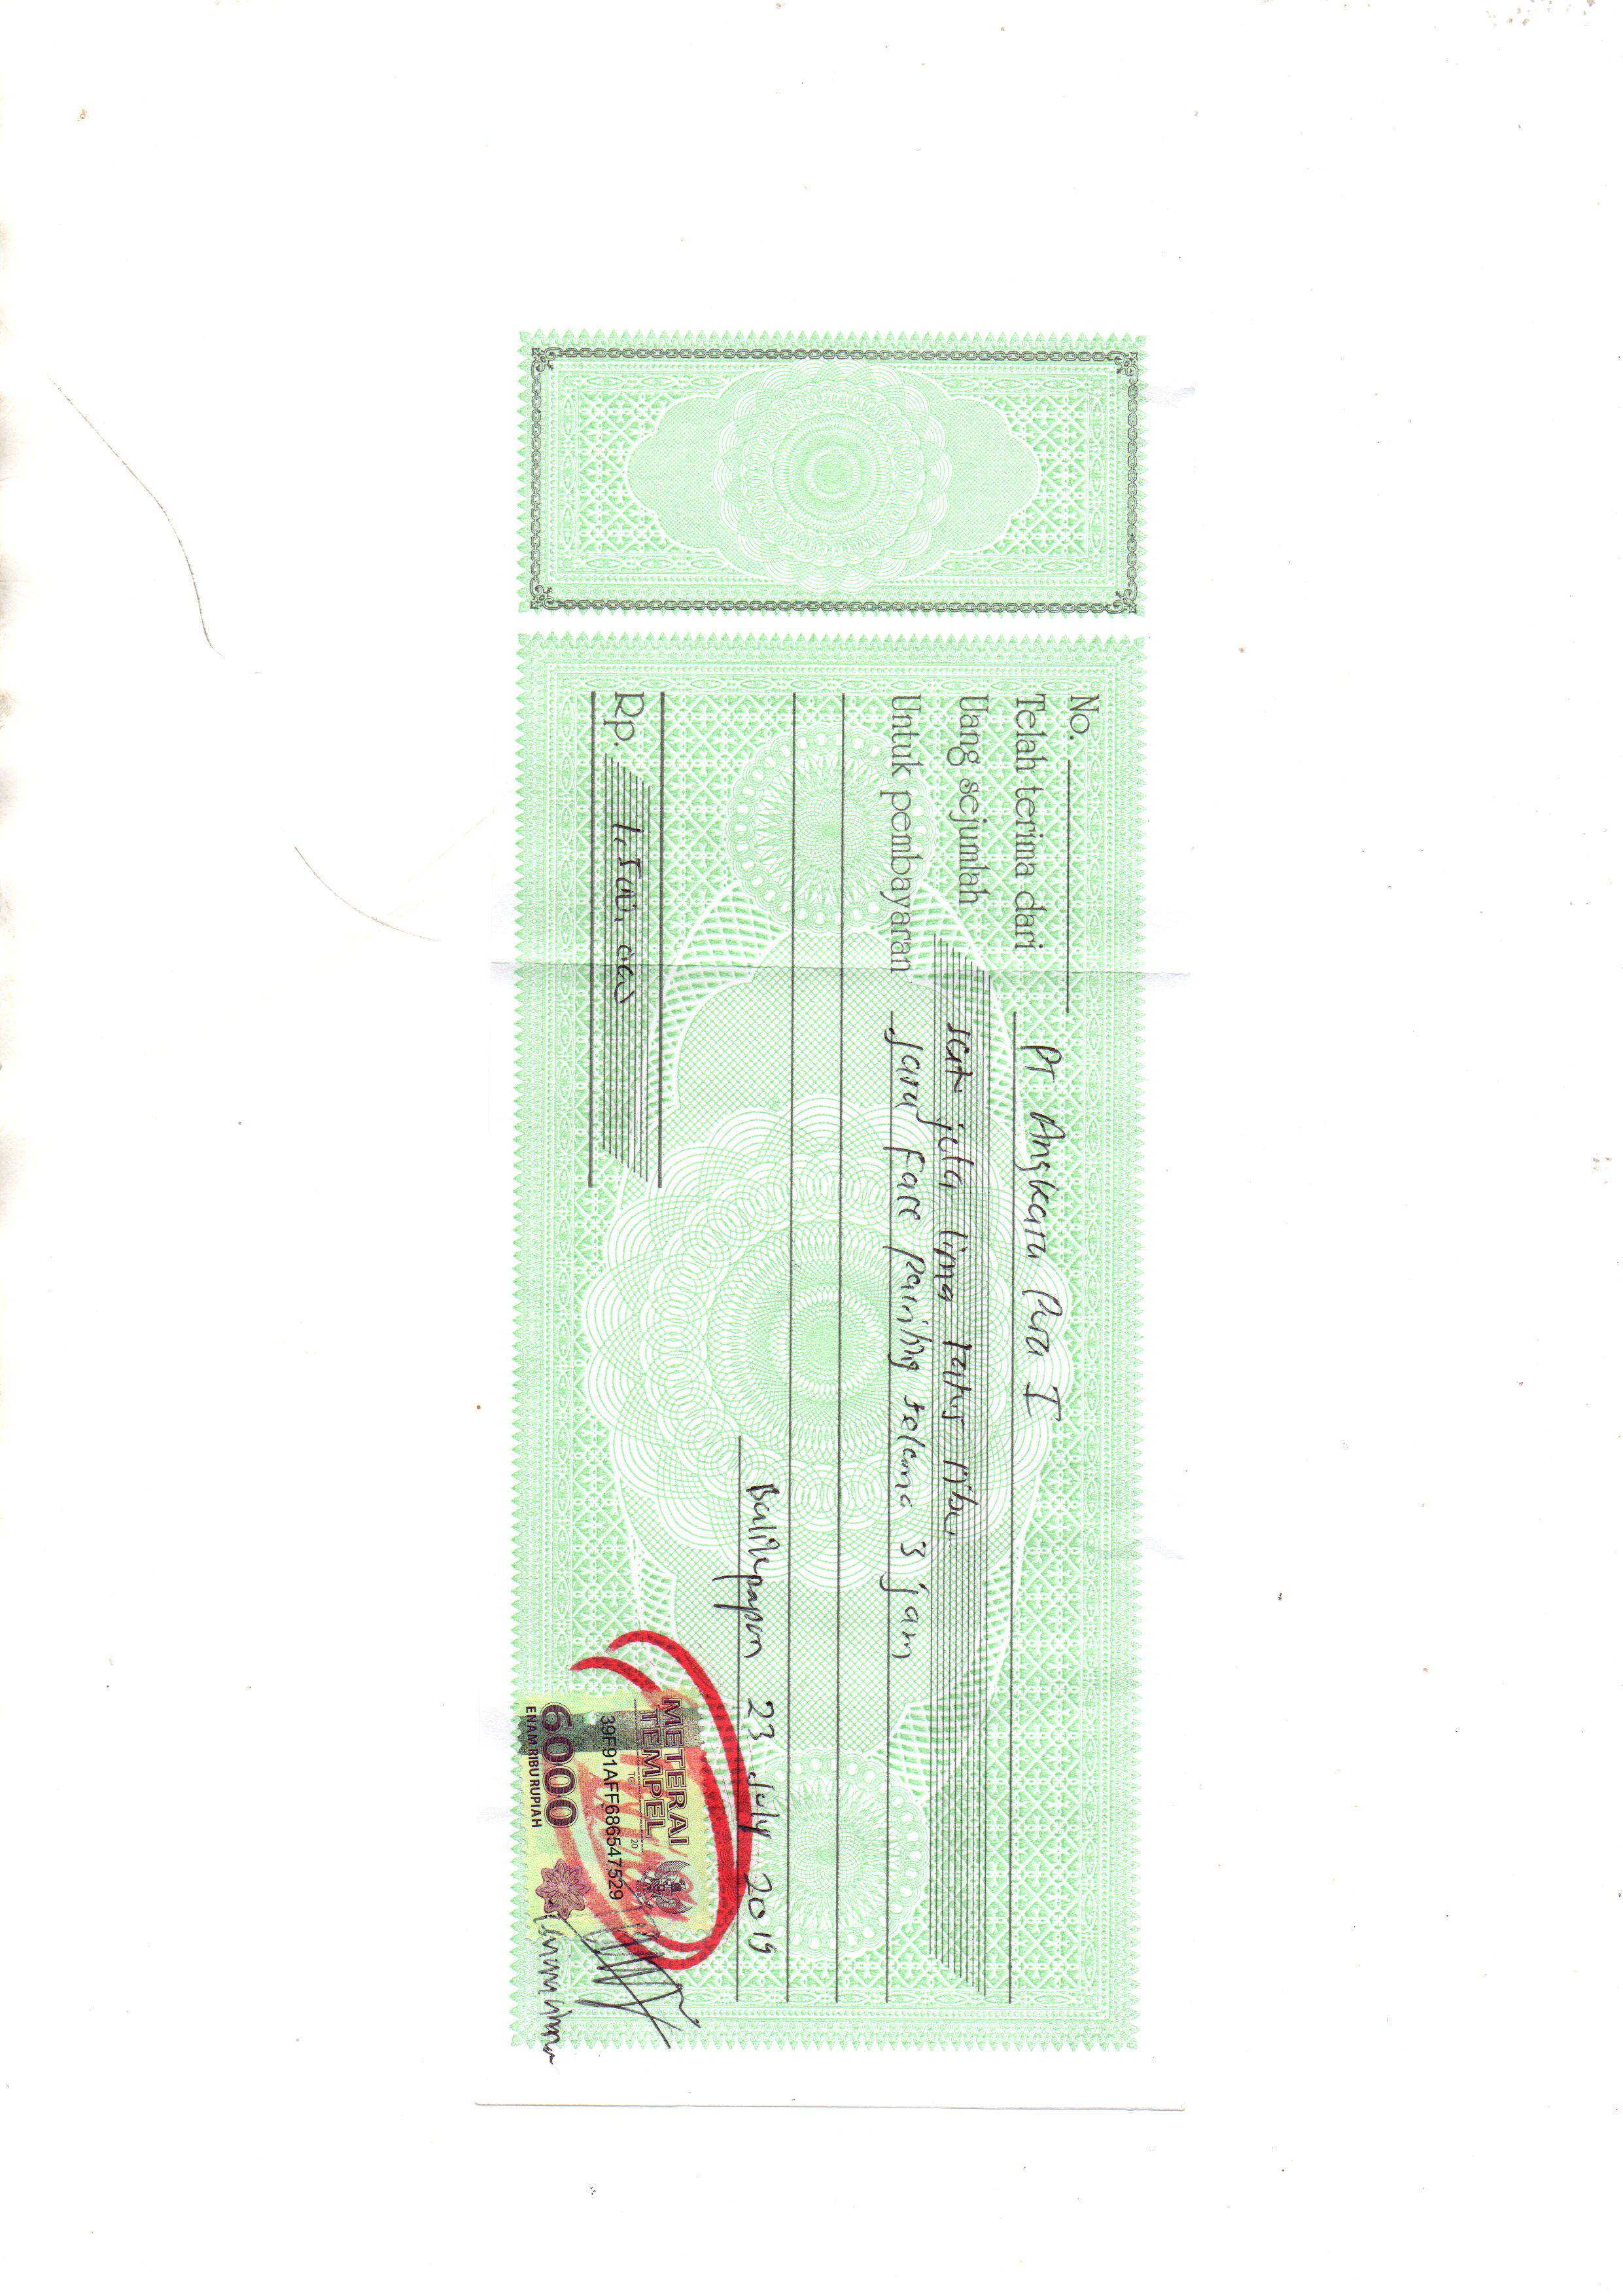 No.
Telah terima dari PT Angkara Pura I
Uang sejumlah satu juta lima ratus ribu
Untuk pembayaran Jasa Face Painting selama 3 jam
Balikpapan 23 July 2019
Rp. 1.500.000
METERAI
TEMPEL
TGL. 20
39F91AFF686547529
6000
ENAM RIBU RUPIAH